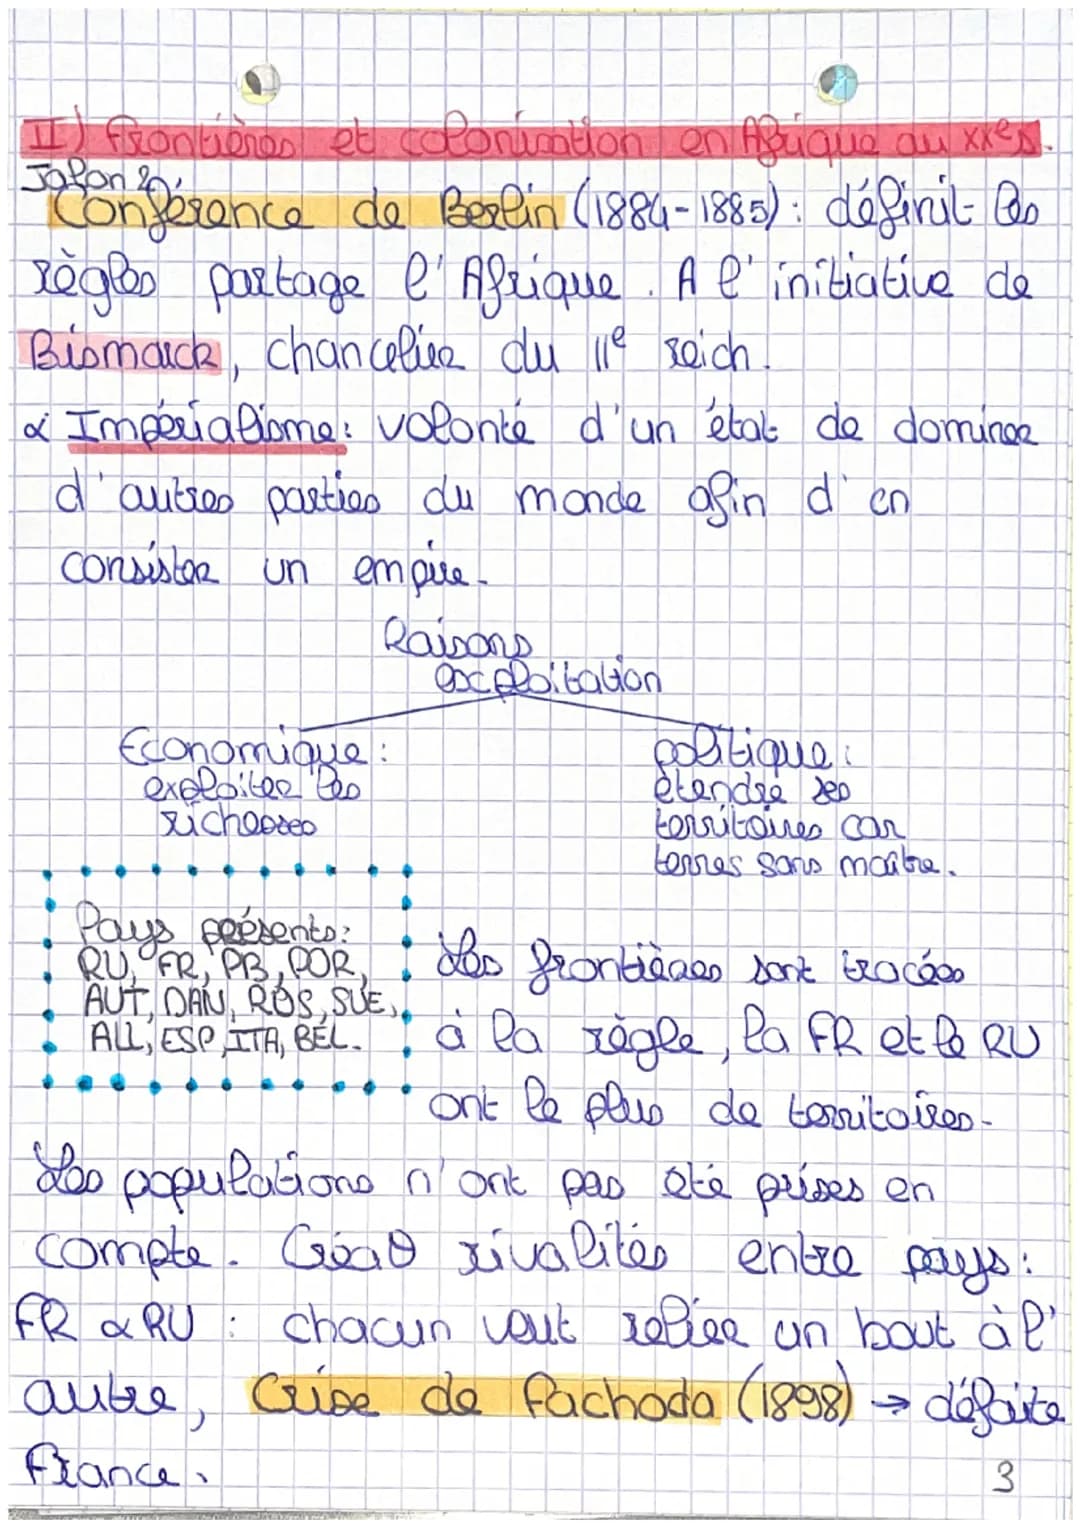 II) Frontières et colonisation en Afrique au XXe s.
Jalon 2:
Conférence de Berlin (1884-1885): définit les
règles partage l'Afrique. A l'initiative de
Bismarck, chancelier du IIe reich.
α Impérialisme: volonté d'un état de dominer
d'autres parties du monde afin d'en
consister un empire.
Raisons
exploitation
Economique:
exploiter les
richesses
politique:
étendre ses
territoires car
terres sans maître.
Pays présents:
RU, FR, PB, POR,
AUT, DAN, ROS, SUE,
ALL, ESP, ITA, BEL.
Les frontières sont tracées
à la règle, la FR et le RU
ont le plus de territoires.
Les populations n'ont pas été prises en
compte. Créa° rivalités entre pays:
FR α RU : chacun veut relier un bout à l'
autre, Crise de Fachoda (1898) → défaite
France.
3